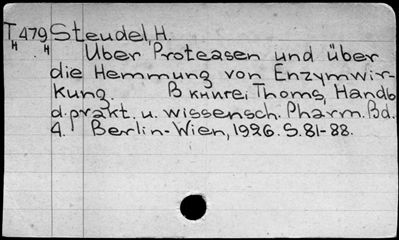 T479 Steudel, H.
н .н Über Proteasen und über
die Hemmung von Enzymwir-
kung. В книге: Thoms, Handb
d. prakt. u. wissensch. Pharm. Bd.
4. Berlin-Wien, 1926. S. 81-88.